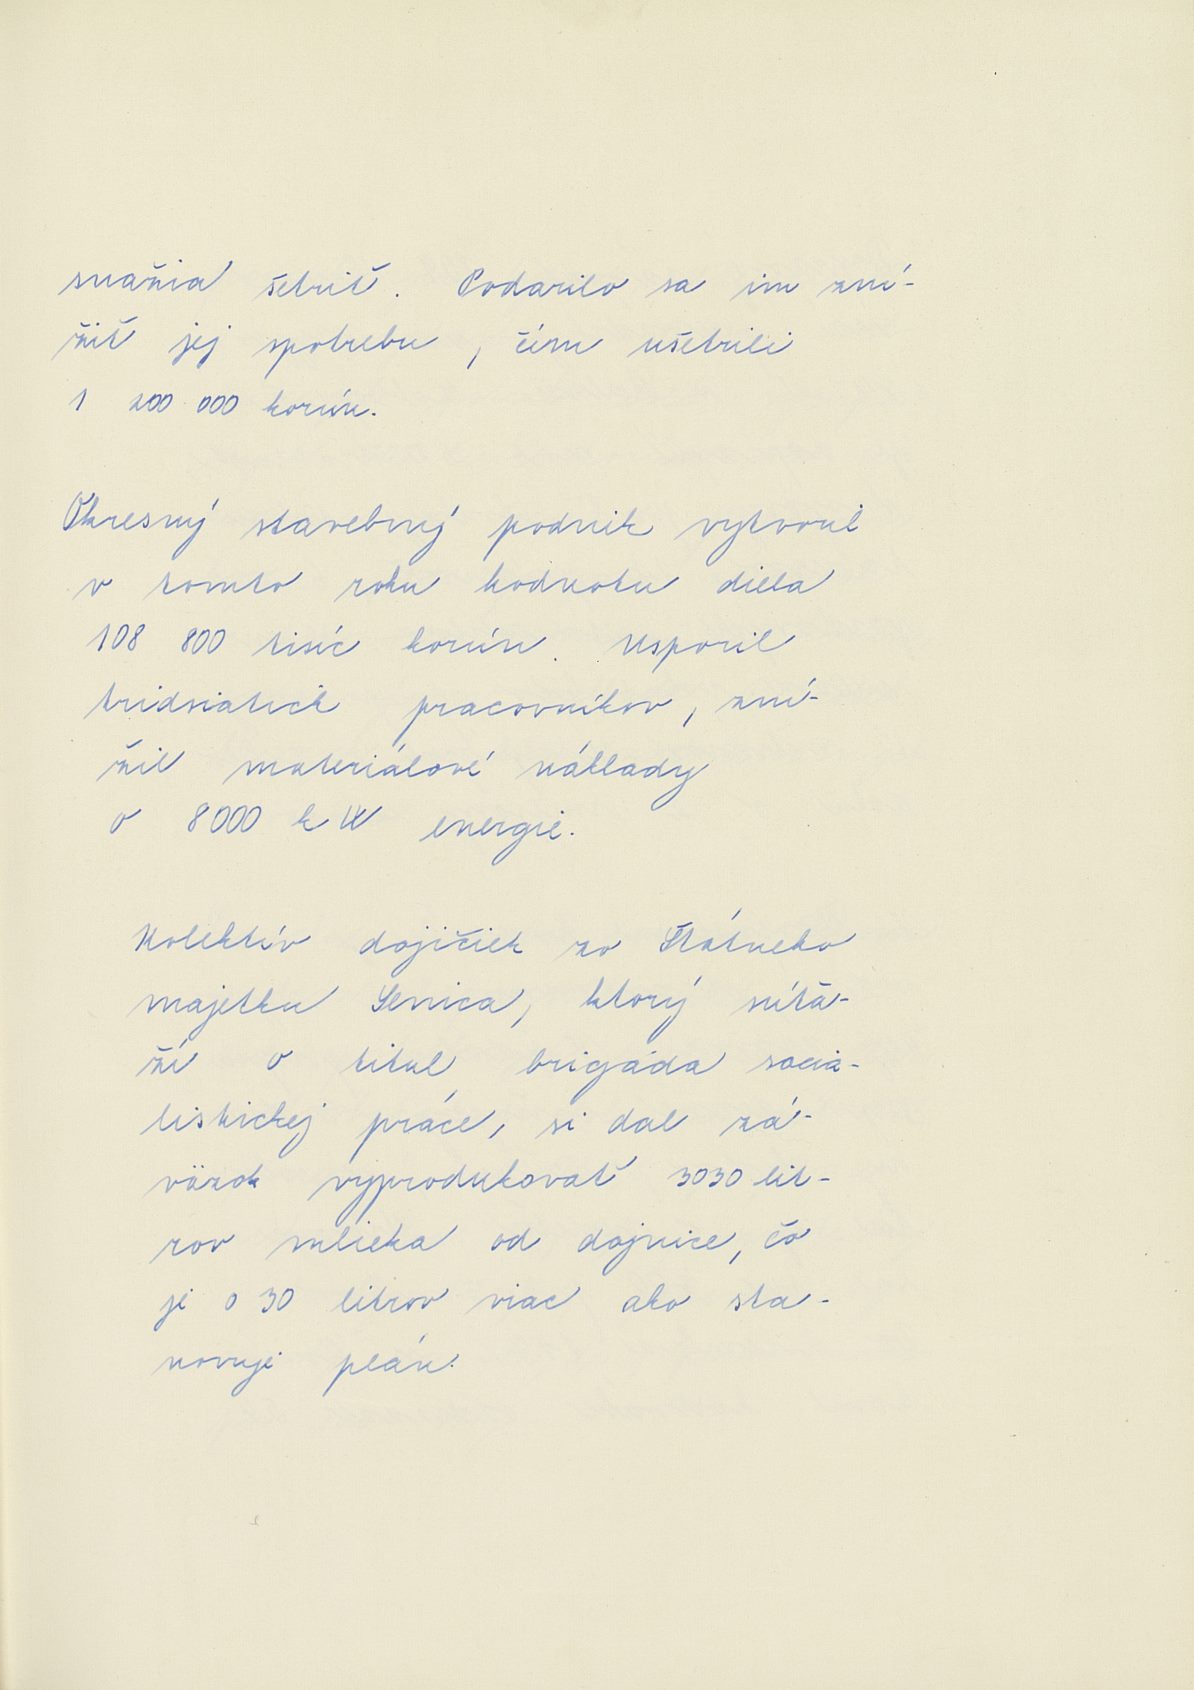 snažia šetriť. Podarilo sa im zní-
žiť jej spotrebu, čím ušetrili
1 200 000 korún.
Okresný stavebný podnik vytvoril
v tomto roku hodnotu diela
108 800 tisíc korún. Usporil
tridsiatich pracovníkov, zní-
žil materiálové náklady
o 8000 kW energie.
Kolektív dojičiek zo Štátneho
majetku Senica, ktorý súťa-
ží o titul brigáda socia-
listickej práce, si dal zá-
väzok vyprodukovať 3030 lit-
rov mlieka od dojnice, čo
je o 30 litrov viac ako sta-
novuje plán.